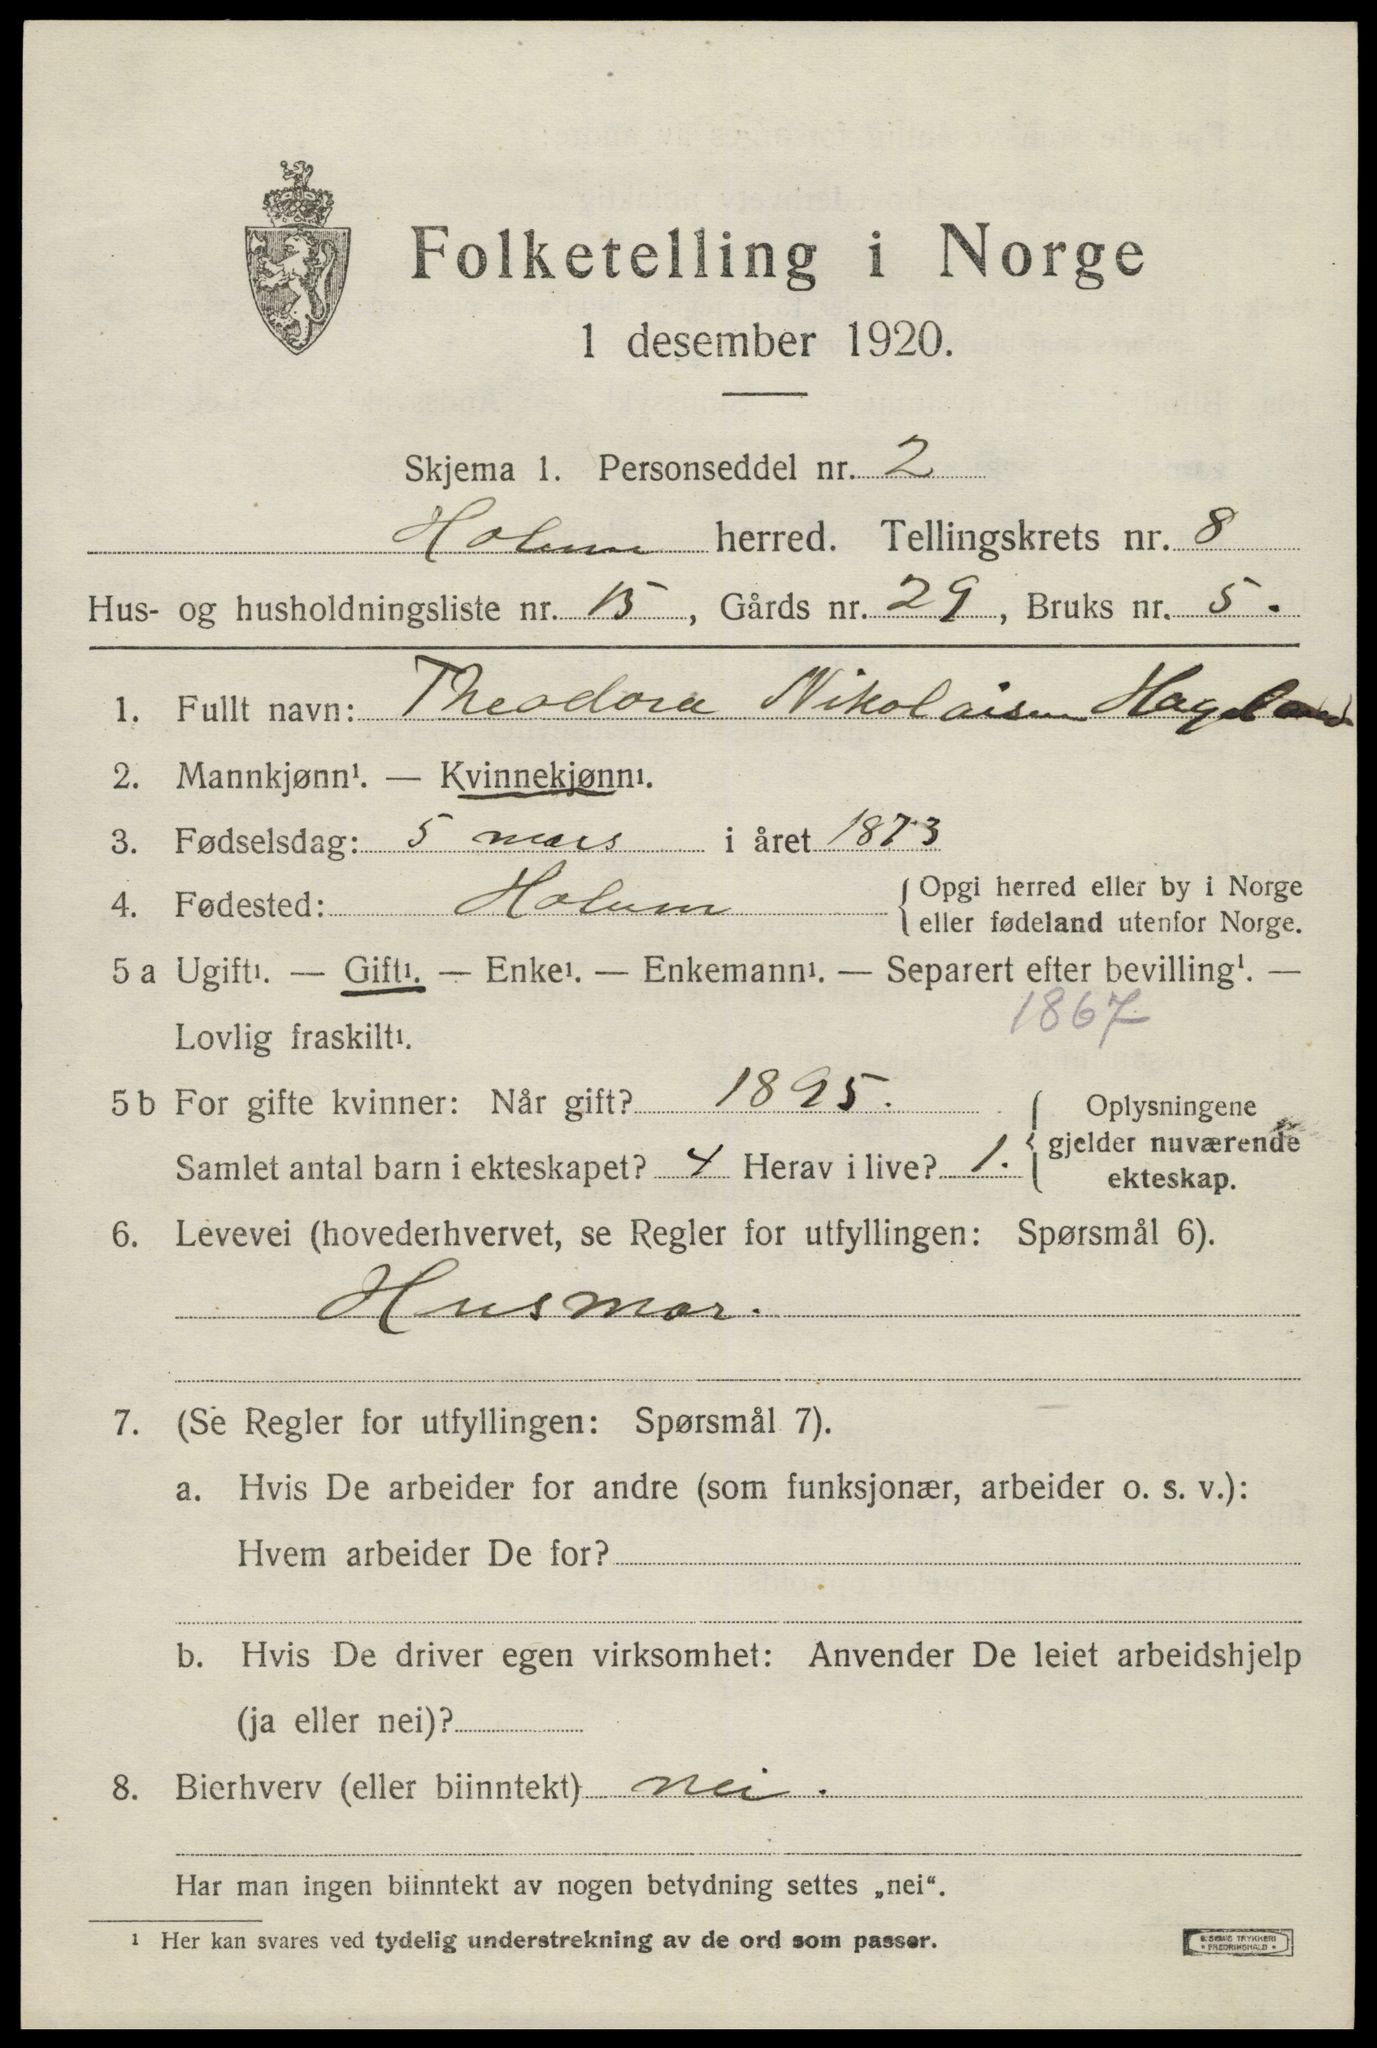 Folketelling i Norge
1 desember 1920.
Skjema 1. Personseddel nr. 2
Holum herred. Tellingskrets nr. 8
Hus- og husholdningsliste nr. 15, Gårds nr. 29, Bruks nr. 5.
1. Fullt navn: Theodora Nikolaisen Hageland
2. Mannkjønn¹. — Kvinnekjønn¹.
3. Fødselsdag: 5 mars i året 1873
4. Fødested: Holum { Opgi herred eller by i Norge
eller fødeland utenfor Norge.
5 a Ugift¹. — Gift¹. — Enke¹. — Enkemann¹. — Separert efter bevilling¹. —
1867
Lovlig fraskilt¹.
5 b For gifte kvinner: Når gift? 1895. { Oplysningene
gjelder nuværende
Samlet antal barn i ekteskapet? 4 Herav i live? 1. ekteskap.
6. Levevei (hovederhvervet, se Regler for utfyllingen: Spørsmål 6).
Husmor.
7. (Se Regler for utfyllingen: Spørsmål 7).
a. Hvis De arbeider for andre (som funksjonær, arbeider o. s. v.):
Hvem arbeider De for?
b. Hvis De driver egen virksomhet: Anvender De leiet arbeidshjelp
(ja eller nei)?
8. Bierhverv (eller biinntekt) nei.
Har man ingen biinntekt av nogen betydning settes „nei“.
¹ Her kan svares ved tydelig understrekning av de ord som passer.
TRYKKERI
FREDRIKSHALD